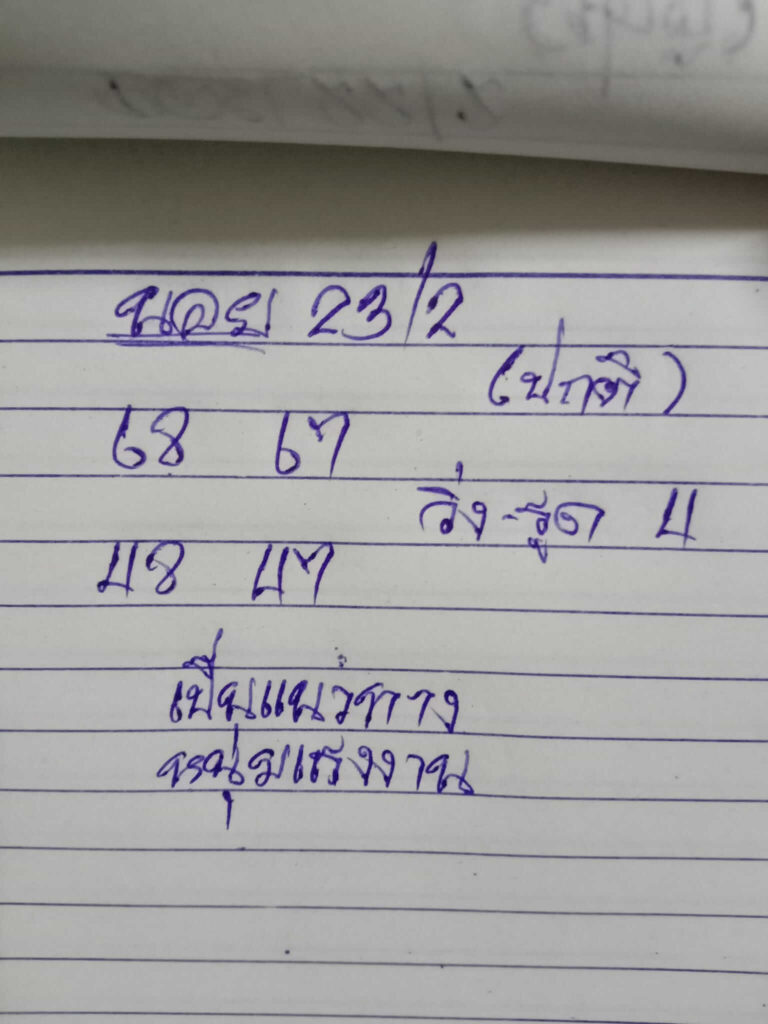 นอย 23/2
(ปกติ)
68 67
วิ่ง-รูด 4
48 47
เป็นแนวทาง
หนุ่มแรงงาน